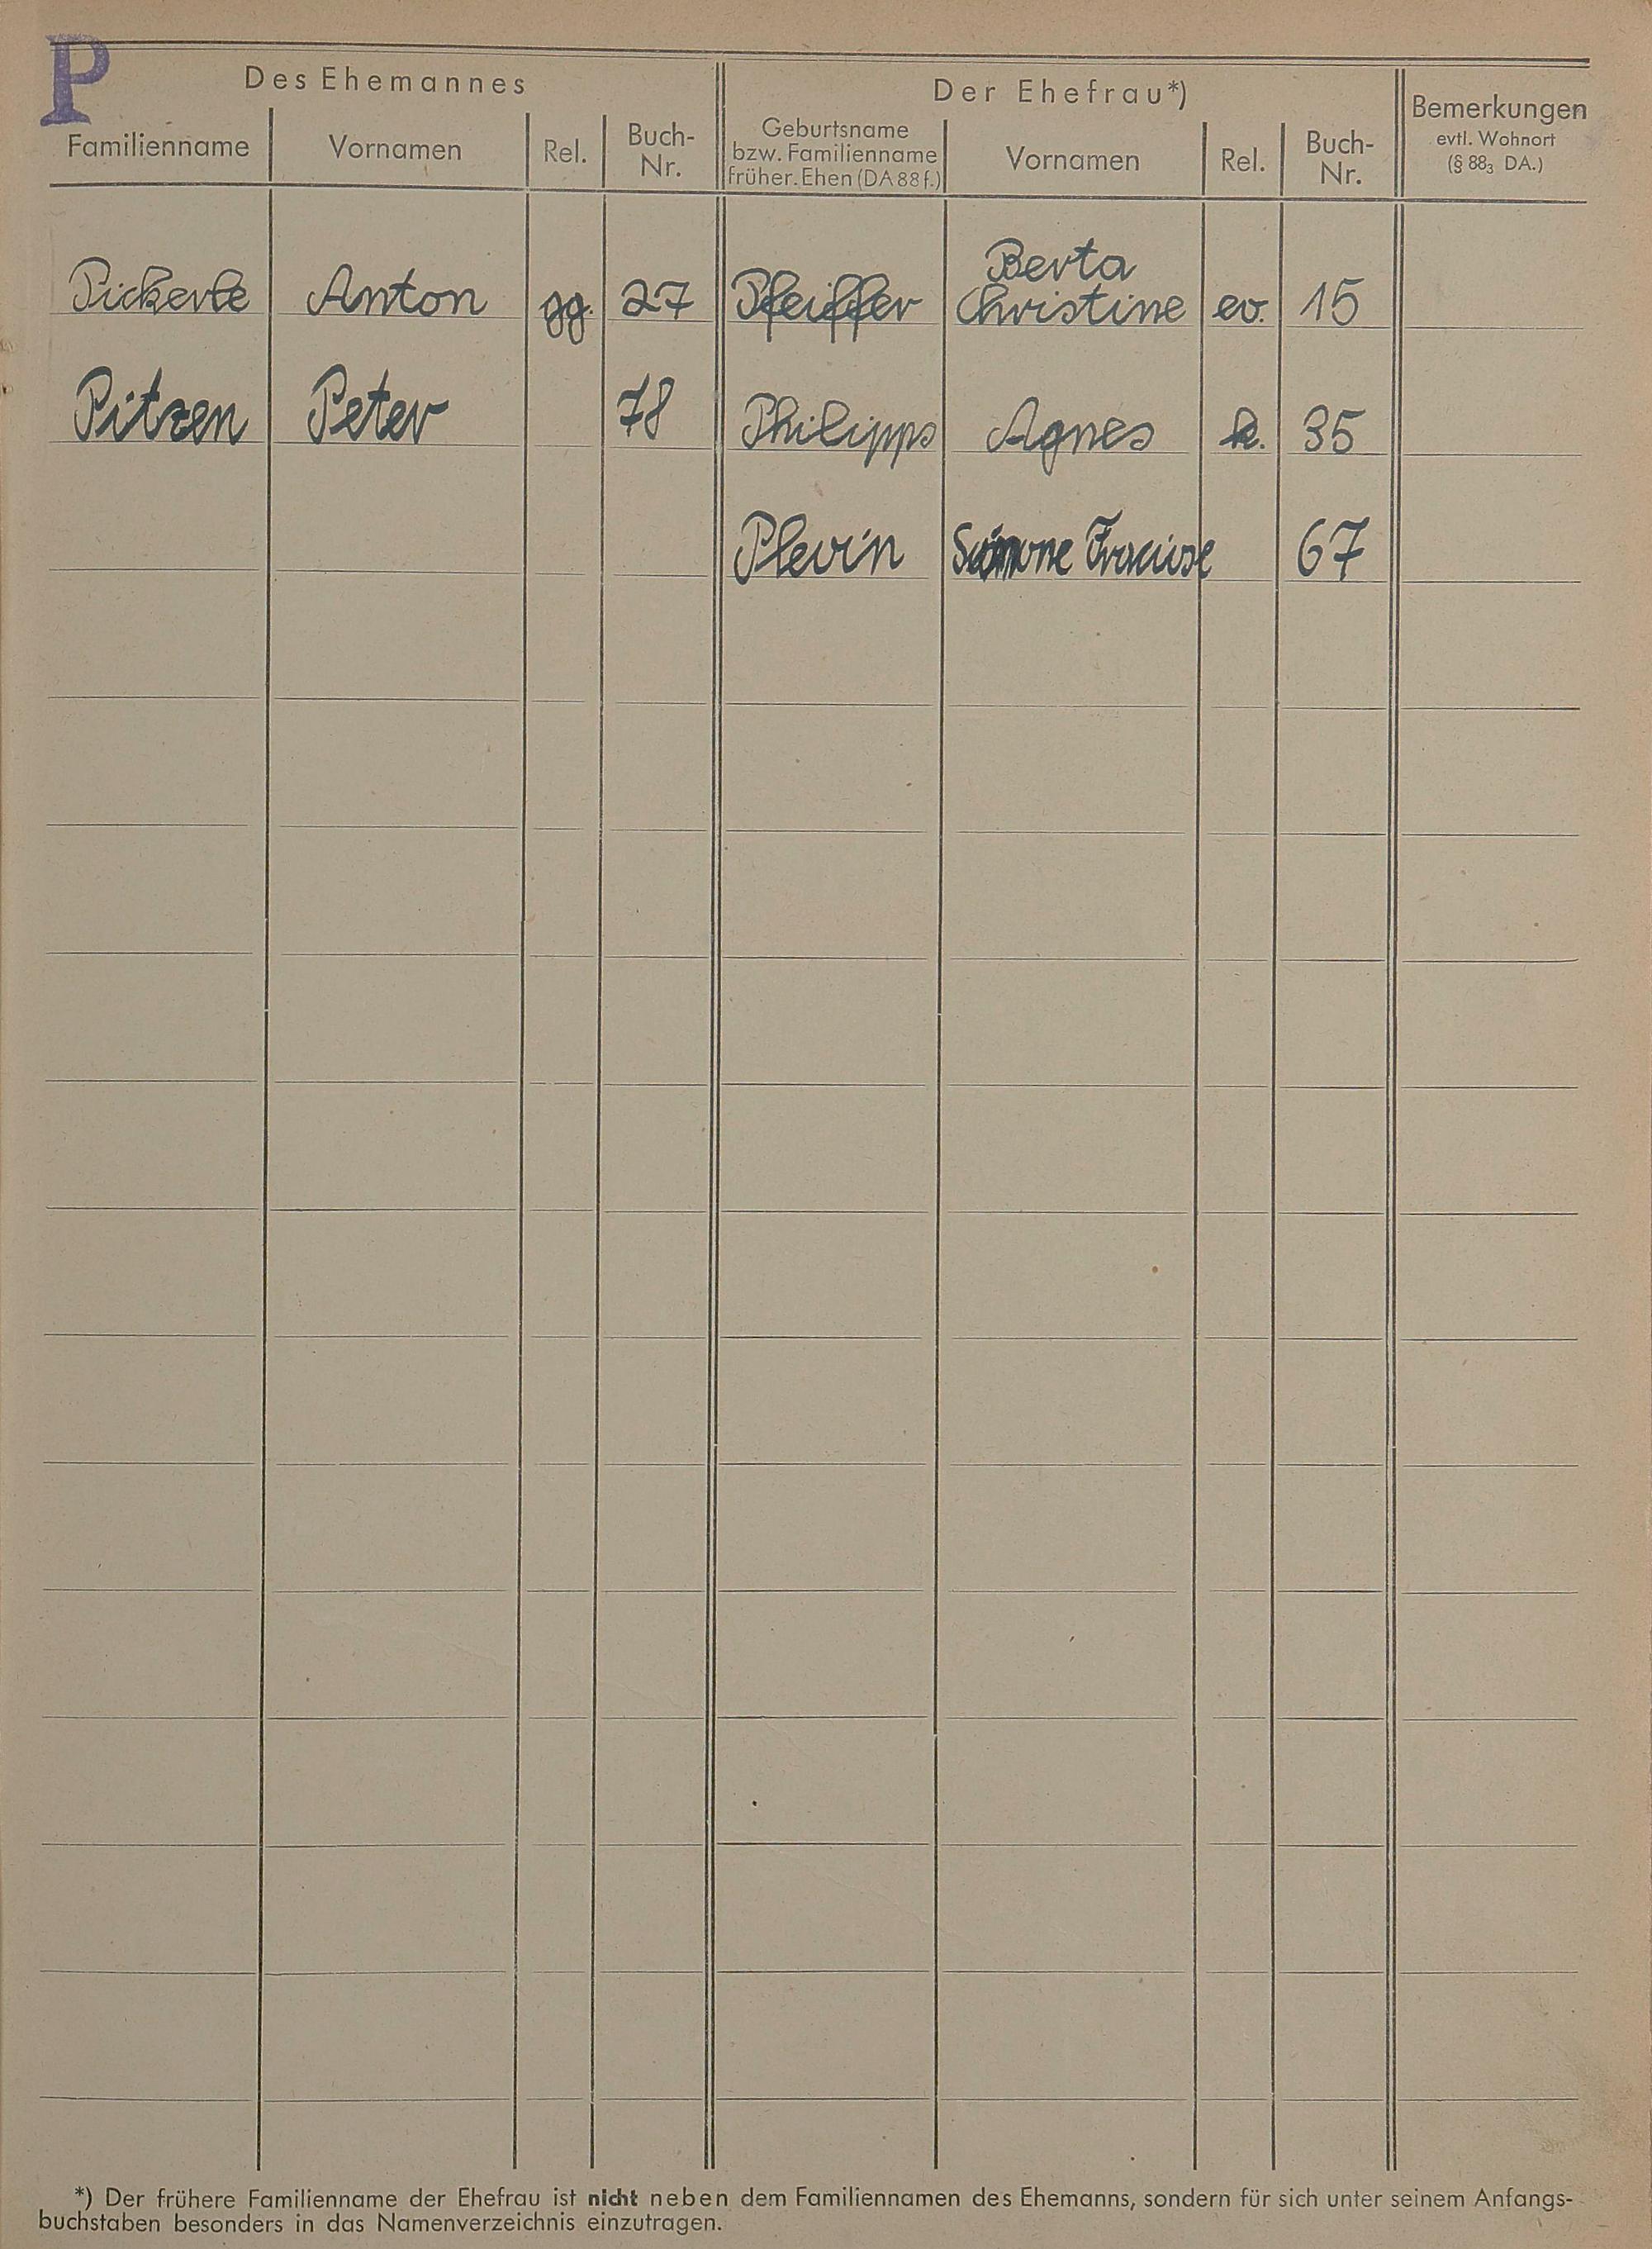 P
Des Ehemannes
Der Ehefrau*)
Bemerkungen
evtl. Wohnort
(§ 88₃ DA.)
Familienname
Vornamen
Rel.
Buch-
Nr.
Geburtsname
bzw. Familienname
früher. Ehen (DA 88 f.)
Vornamen
Rel.
Buch-
Nr.
Pickerle Anton gg. 27 Pfeiffer Berta
Christine ev. 15
Pitzen Peter 78 Philipps Agnes k. 35
Plevin Simone 67
*) Der frühere Familienname der Ehefrau ist nicht neben dem Familiennamen des Ehemanns, sondern für sich unter seinem Anfangs-
buchstaben besonders in das Namenverzeichnis einzutragen.